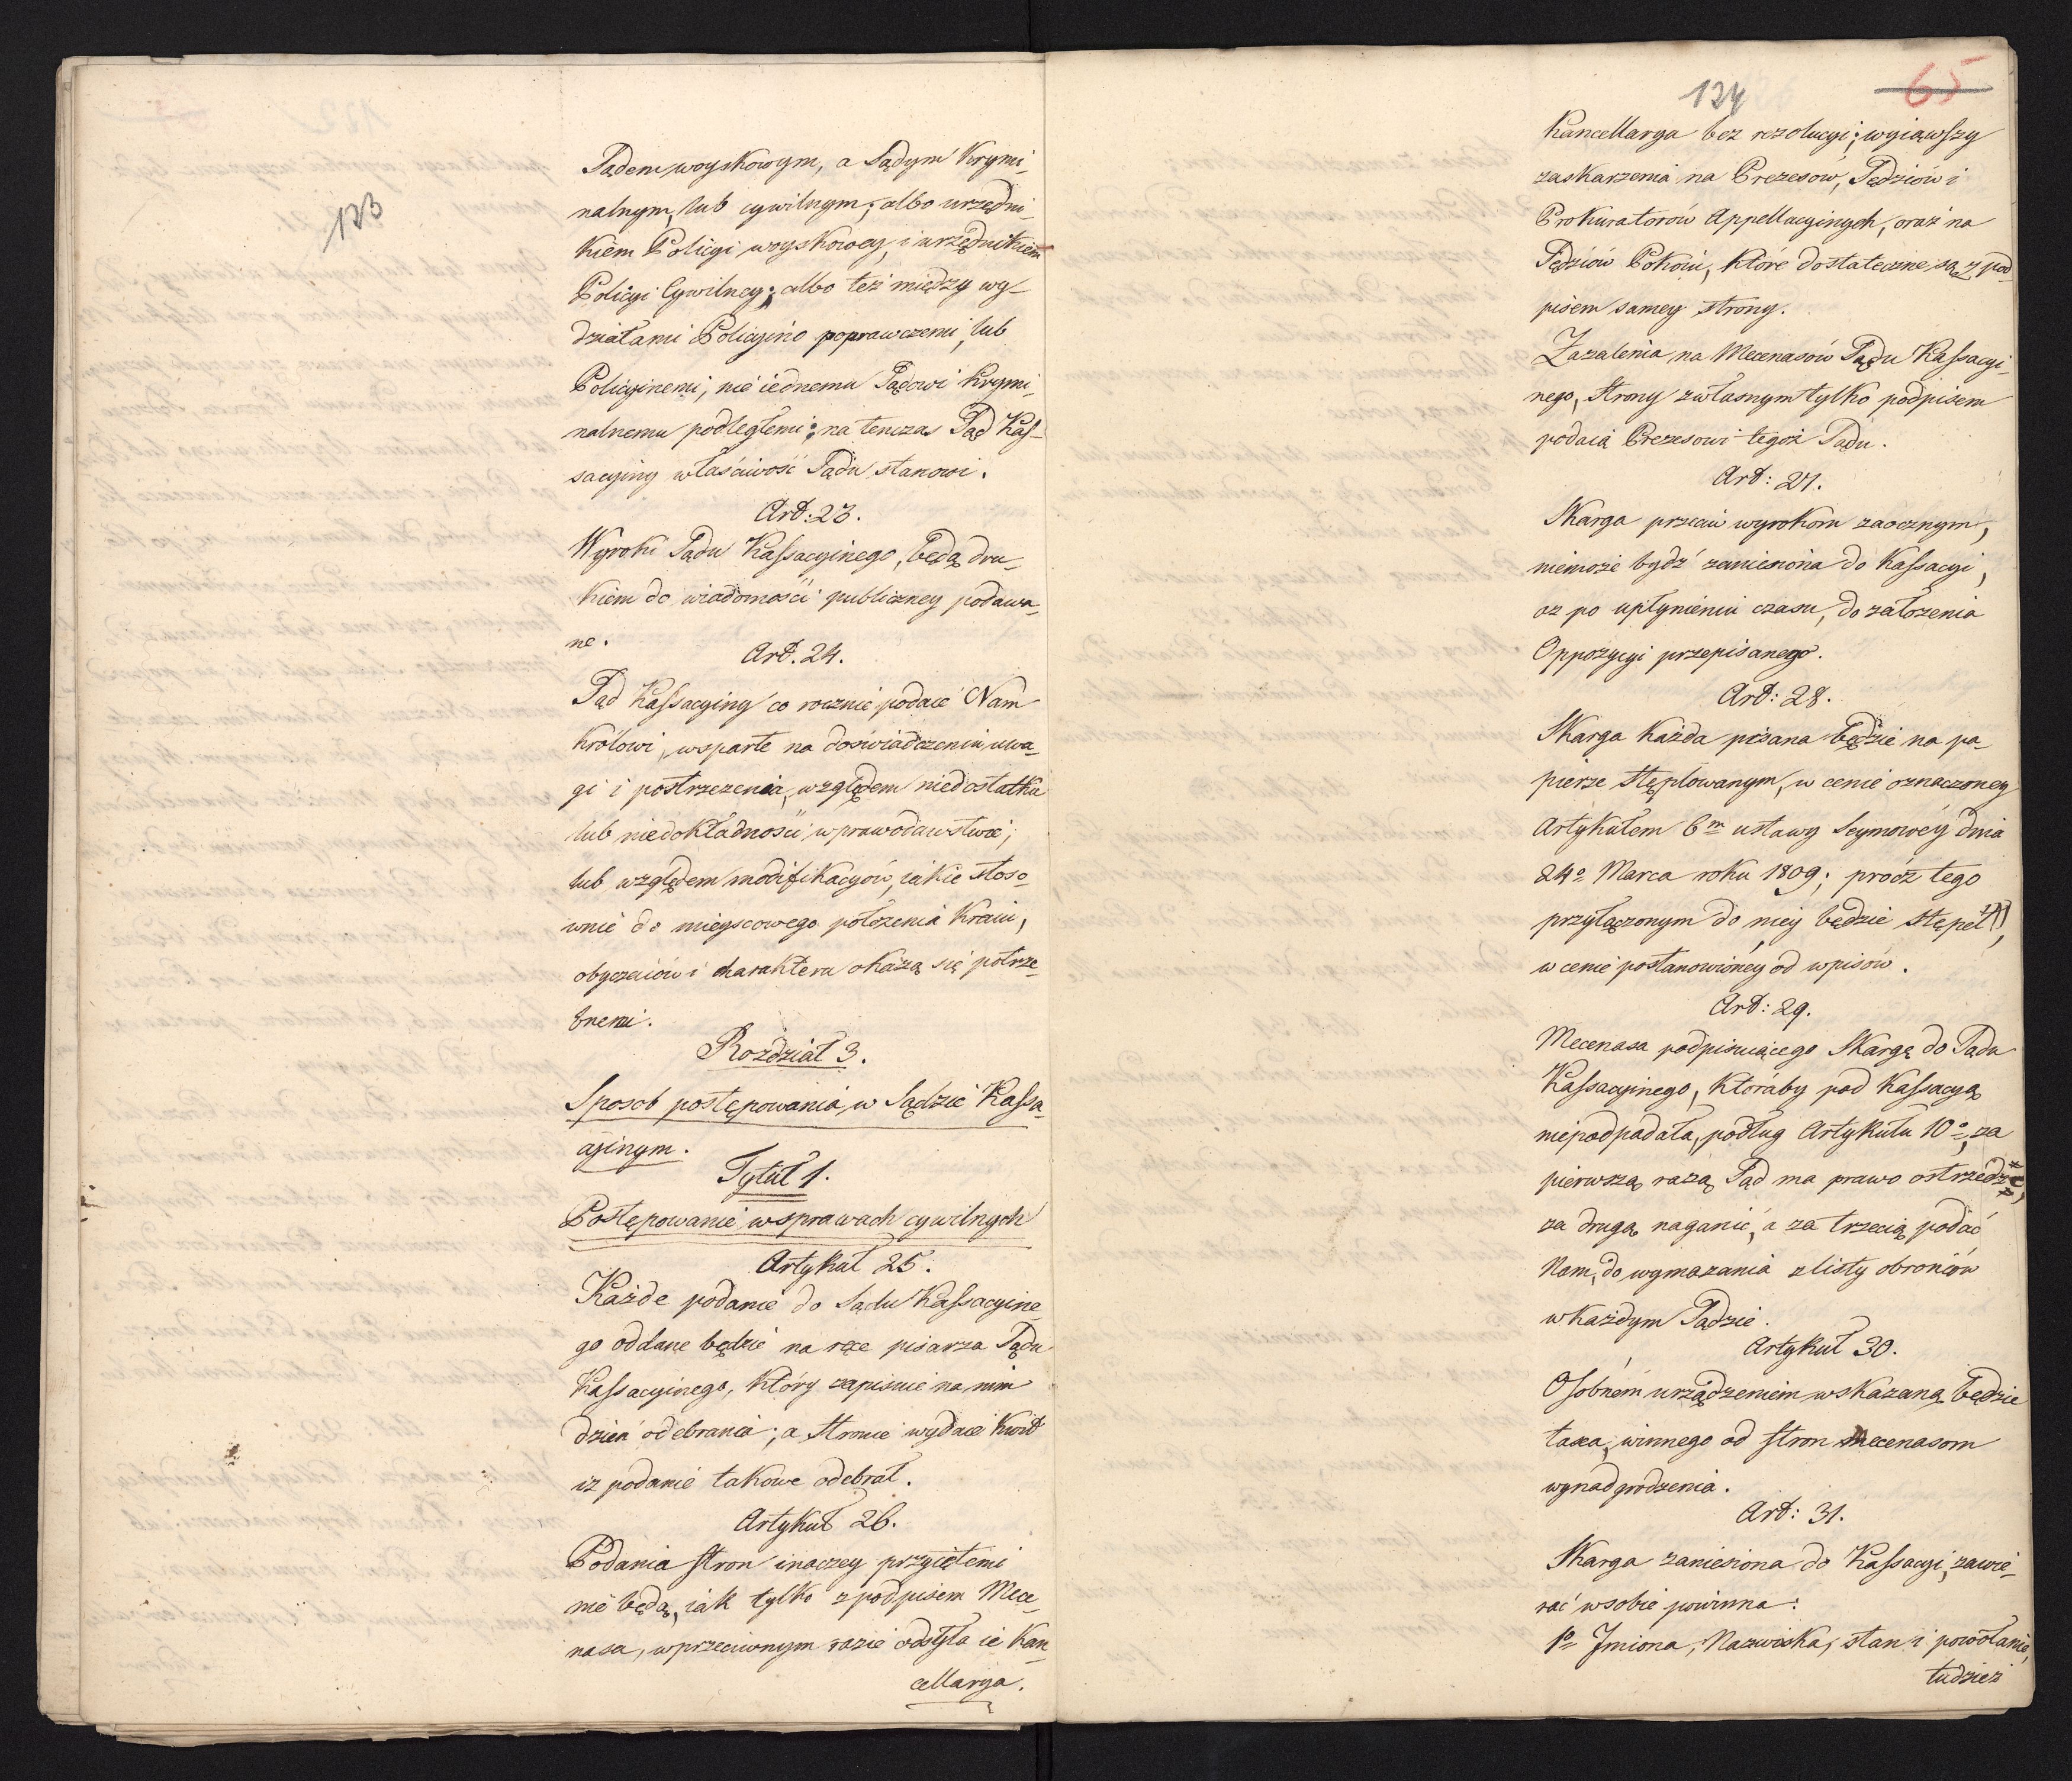 123
Sądem woyskowym, a Sądym Krymi-
nalnym, lub cywilnym; albo urzędni-
kiem Policyi woyskowey, i urzędnikiem
Policyi Cywilney; albo też między wy-
działami Policyino poprawczemi, lub
Policyinemi, nie iednemu Sądowi Krymi-
nalnemu podległemi; na tenczas Sąd Kas-
sacyiny właściwość Sądu stanowi.
Art: 23.
Wyroki Sądu Kassacyinego, będą dru-
kiem do wiadomości publiczney podawa-
ne.
Art. 24.
Sąd Kassacyiny co rocznie podaie Nam
Królowi, wsparte na doświadczeniu uwa-
gi i postrzezenia, względem niedostatku
lub niedokładności w prawodawstwie;
lub względem modifikacyów, iakie stoso-
wnie do mieyscowego położenia Kraiu,
obyczaiów i charakteru okażą się potrze-
bnemi.
Rozdział 3.
Sposob postępowania w Sądzie Kassa-
cyinym.
Tytuł 1.
Postępowanie w sprawach cywilnych
Artykuł 25.
Każde podanie do Sądu Kassacyine
go oddane będzie na ręce pisarza Sądu
Kassacyinego, który zapisuie na nim
dzień odebrania; a stronie wydaie kwit
iz podanie takowe odebrał.
Artykuł 26.
Podania stron inaczey przyiętemi
nie będą, iak tylko z podpisem Mece-
nasa, w przeciwnym razie odsyła ie Kan-
cellarya.
124
65
Kancellarya bez rezolucyi; wyiąwszy
zaskarzenia na Prezesów, Sędziów i
Prokuratorów Appellacyinych, oraz na
Sędziów Pokoiu, które dostateczne są z pod-
pisem samey strony.
Zazalenia na Mecenasów Sądu Kassacyi-
nego, strony z własnym tylko podpisem
podaią Prezesowi tegoż Sądu.
Art: 27.
Skarga przeciw wyrokom zaocznym,
niemoże bydź zaniesiona do Kassacyi,
az po upłynieniu czasu, do założenia
Oppozycyi przepisanego.
Art: 28.
Skarga każda pisana będzie na pa-
pierze stęplowanym, w cenie oznaczoney
Artykułem 6m ustawy Seymowéy dnia
24o Marca roku 1809; prócz tego
przyłączonym do niey będzie stępel,
w cenie postanowióney od wpisów.
Art: 29.
Mecenasa podpisuiącego Skargę do Sądu
Kassacyinego, któraby pod Kassacyą
niepodpadała, podług Artykułu 10o, za
pierwszą razą Sąd ma prawo ostrzedz,
za drugą naganić, a za trzecią podać
Nam, do wymazania z listy obrońców
w każdym Sądzie.
Artykuł 30.
Osobném urządzeniem wskazaną będzie
taxa, winnego od stron Mecenasom
wynadgrodzenia.
Art: 31.
Skarga zaniesiona do Kassacyi, zawie-
rać w sobie powinna:
1o Jmiona, Nazwiska, stan i powołanie,
tudzież